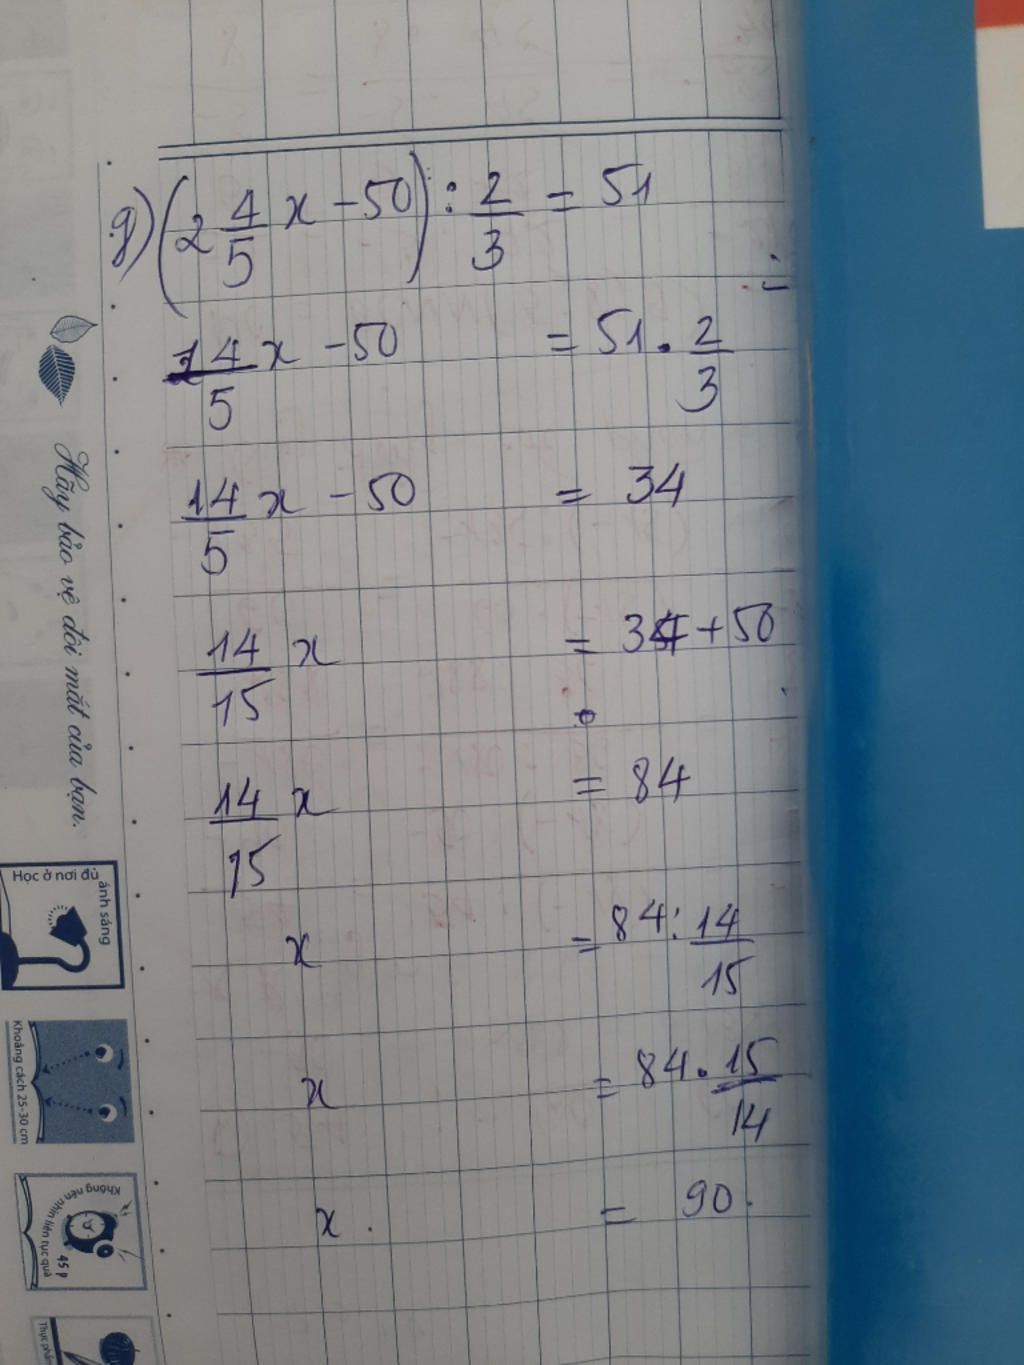 g) (2 4/5 x - 50) : 2/3 = 51
14/5 x - 50 = 51 . 2/3
14/5 x - 50 = 34
14/15 x = 34 + 50
14/15 x = 84
x = 84 : 14/15
x = 84 . 15/14
x = 90.
Hãy bảo vệ đôi mắt của bạn.
Học ở nơi đủ ánh sáng
Khoảng cách 25-30 cm
Không nên nhìn liên tục quá 45 p